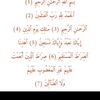 بِسْمِ اللَّهِ الرَّحْمَنِ الرَّحِيمِ (1)
الْحَمْدُ لِلَّهِ رَبِّ الْعَالَمِينَ (2)
الرَّحْمَنِ الرَّحِيمِ (3) مَالِكِ يَوْمِ الدِّينِ (4)
إِيَّاكَ نَعْبُدُ وَإِيَّاكَ نَسْتَعِينُ (5) اهْدِنَا
الصِّرَاطَ الْمُسْتَقِيمَ (6) صِرَاطَ الَّذِينَ أَنْعَمْتَ
عَلَيْهِمْ غَيْرِ الْمَغْضُوبِ عَلَيْهِمْ
وَلَا الضَّالِّينَ (7)